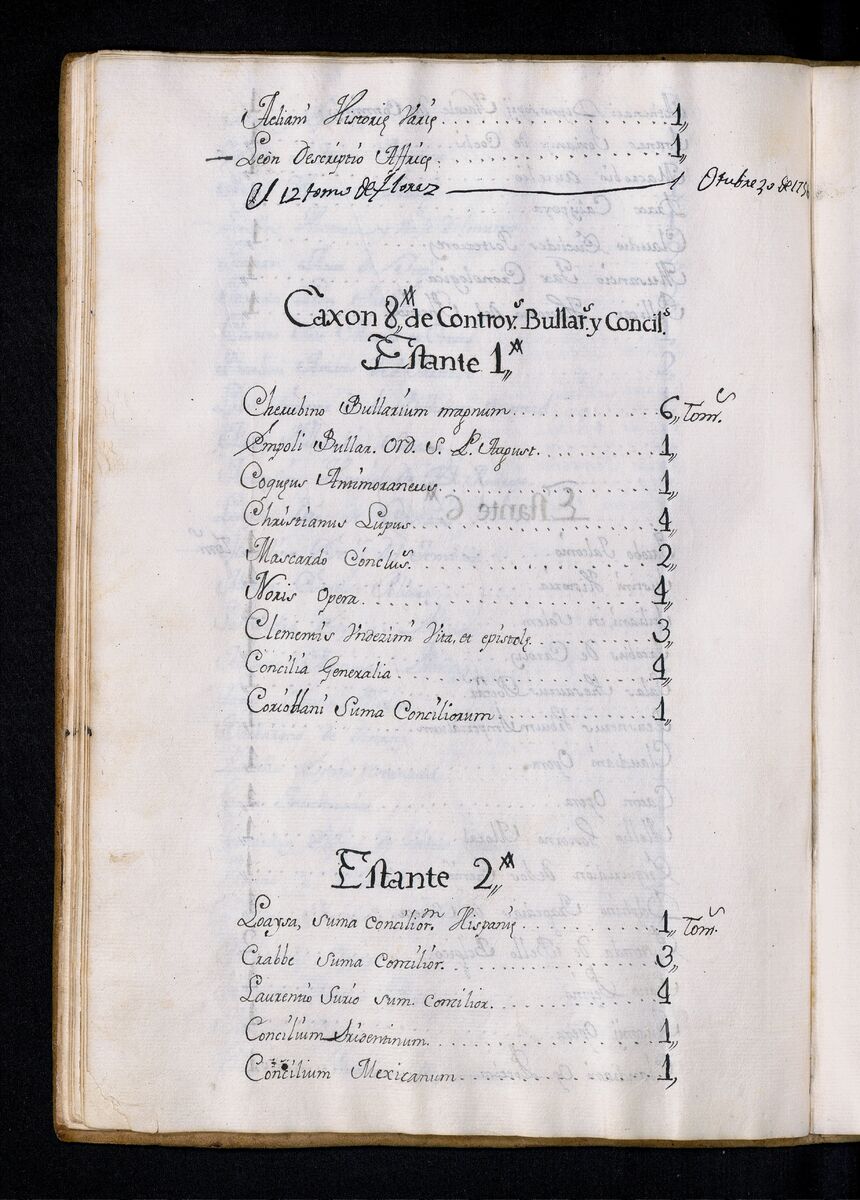 Aeliani Historię Varię 1,,
Leon Descriptio Affricę 1,,
El 12 tomo de florez 1 Otubre 30 de 175
Caxon 8,, de Controv.s Bullar.s y Concil.s
Estante 1,,
Cherubino Bullarium magnum 6,, Tom.s
Empoli Bullar. Ord. S. P. August. 1,,
Coquęus Antimoraneus 1,,
Christianus Lupus 4,,
Mascardo Conclus. 2,,
Noris Opera 4,,
Clementis Undezimi Vita, et epistolę 3,,
Concilia Generalia 4,,
Coriolani Suma Conciliorum 1,,
Estante 2,,
Loaysa, suma concilior.m Hispanię 1,, Tom.s
Crabbe suma Concilior. 3,,
Laurentio Surio sum. concilior. 4,,
Concilium tridentinum. 1,,
Concilium Mexicanum 1,,